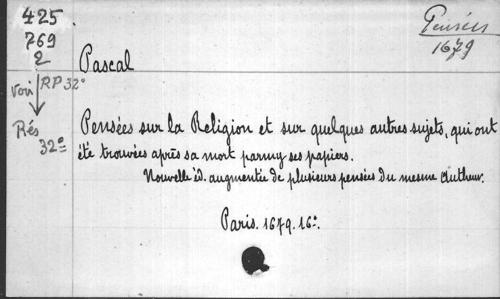 425
769
2
Pensées
1679
Pascal
voir RP 32°
Rés
32°
Pensées sur la Religion et sur quelques autres sujets, qui ont
été trouvées après sa mort parmy ses papiers.
Nouvelle éd. augmentée de plusieurs pensées du mesme Autheur.
Paris. 1679. 16°.